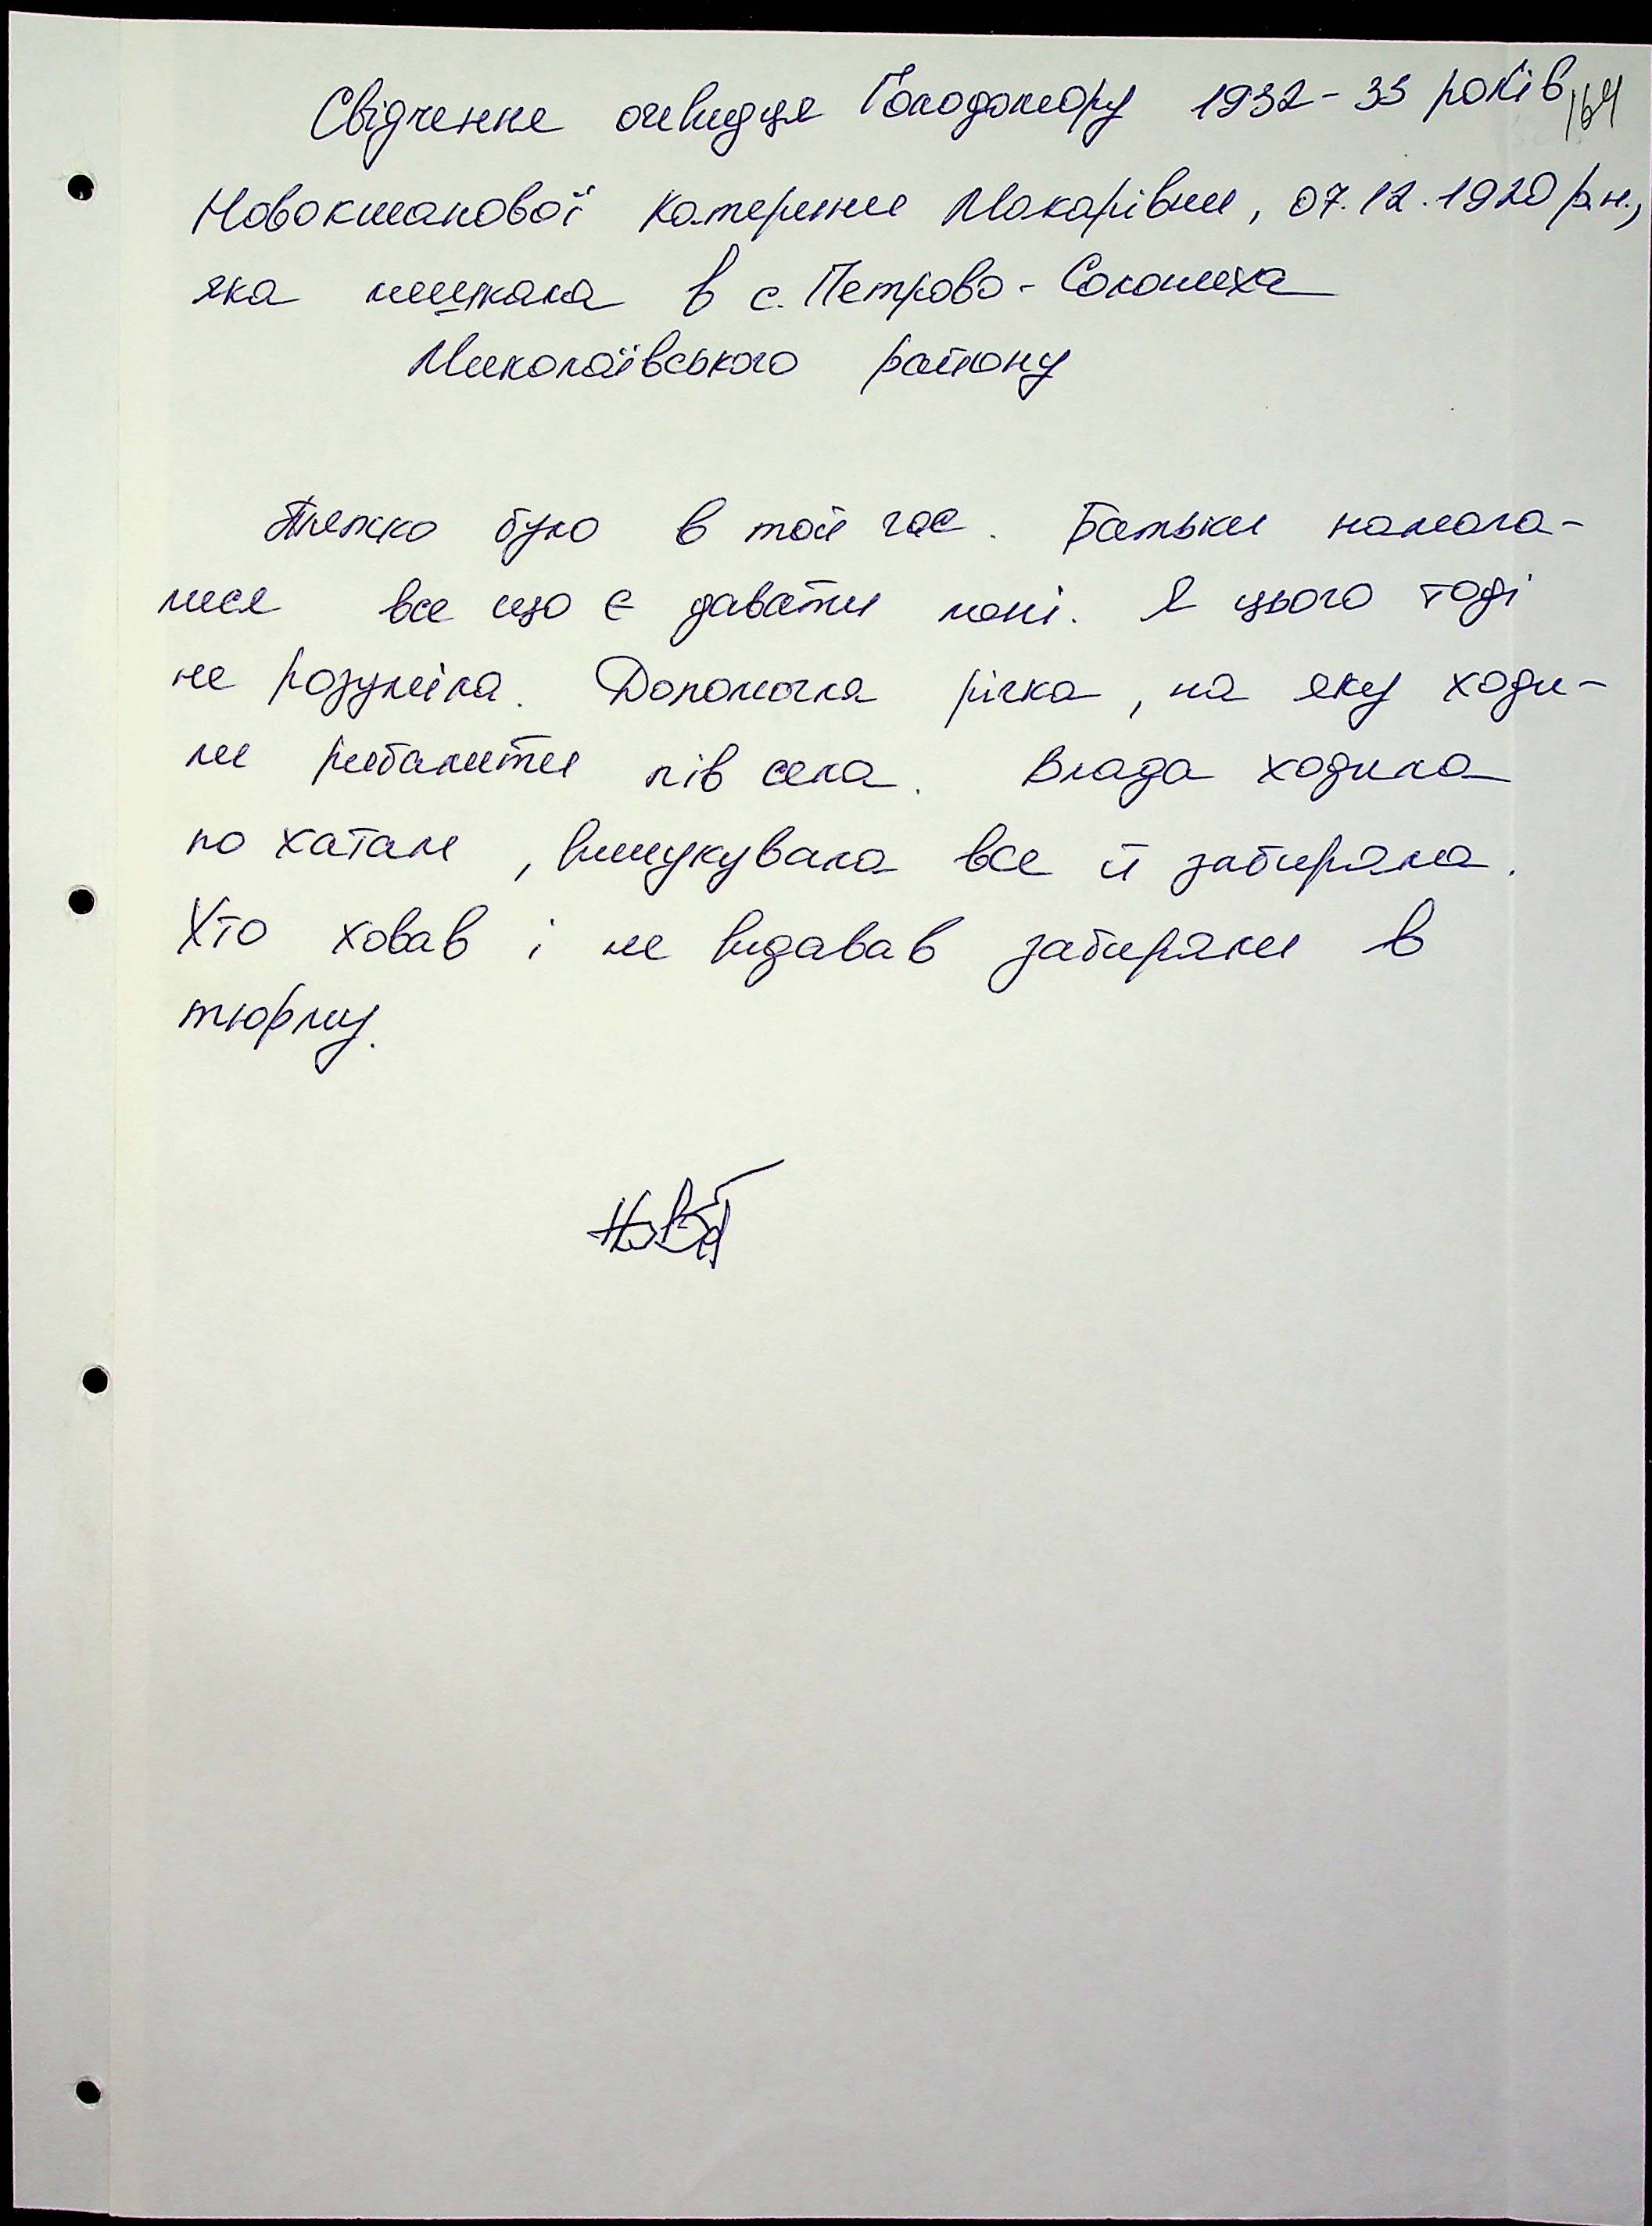 Свідчення очевидця Голодомору 1932-33 років, 164
Новокшанової Катерини Макарівни, 07.12.1920 р.н.,
яка мешкала в с. Петрово-Солониха
Миколаївського району
Тяжко було в той час. Батьки намага-
лися все що є давати мені. Я цього тоді
не розуміла. Допомогла річка, на яку ходи-
ли рибалити пів села. Влада ходила
по хатам, вишукувала все й забирала.
Хто ховав і не видавав забирали в
тюрму.